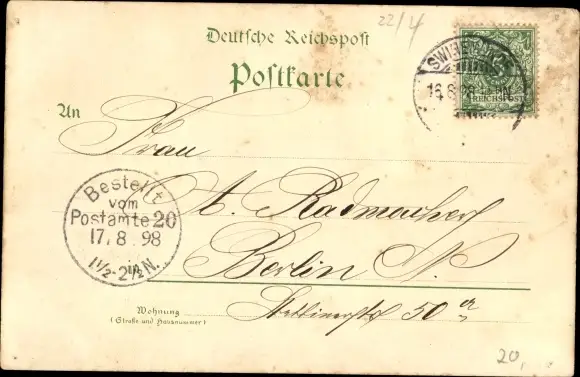 22/4
Deutsche Reichspost
Postkarte
REICHSPOST
16.8.98
An
Frau
A. Radmacher
Bestellt
vom
Postamte 20
17.8.98
1½-2½N.
Berlin N.
Wohnung
(Straße und Hausnummer)
Stettinerstr 50
20,